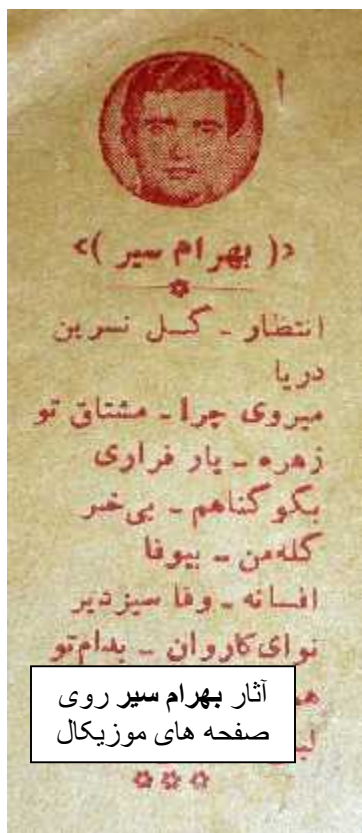 «( بهرام سیر )»
انتظار - گل نسرین
دریا
میروی چرا - مشتاق تو
زهره - یار فراری
بگو گناهم - بی خبر
گله من - بیوفا
افسانه - وفا سیزدیر
نوای کاروان - بدام تو
آثار بهرام سیر روی
صفحه های موزیکال